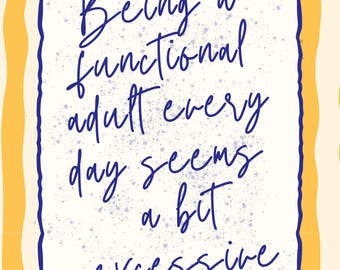 Being a
functional
adult every
day seems
a bit
excessive